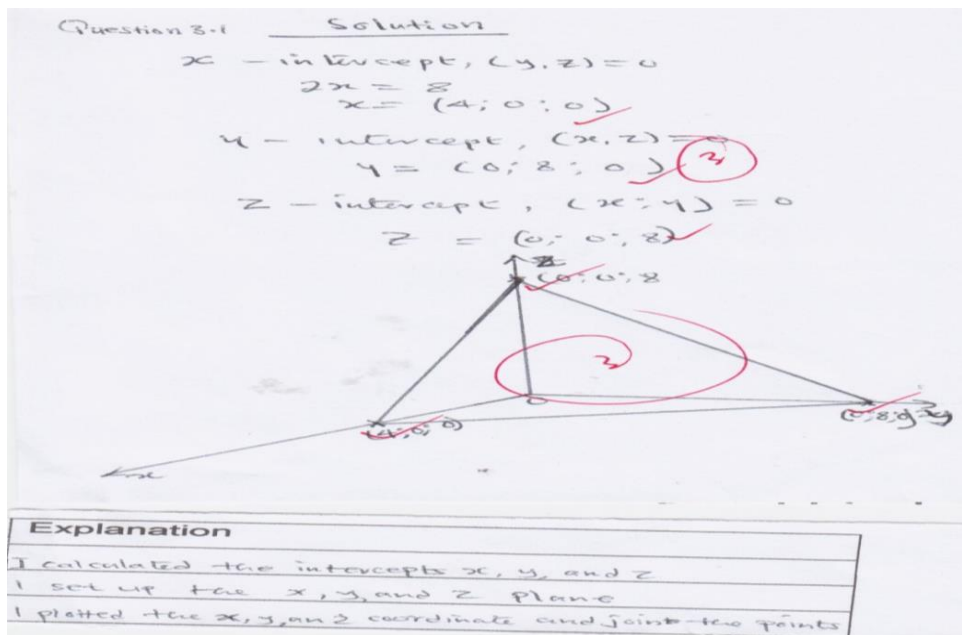 Question 3.1 Solution
x - intercept, (y, z) = 0
2x = 8
x = (4; 0; 0)
y - intercept, (x, z) = 0
y = (0; 8; 0) 3
z - intercept, (x; y) = 0
z = (0; 0; 8)
z
(0; 0; 8
3
0
(4; 0; 0)
(0; 8; 0) y
x
Explanation
I calculated the intercepts x, y, and z
I set up the x, y, and z plane
I plotted the x, y, an z coordinate and joint the points